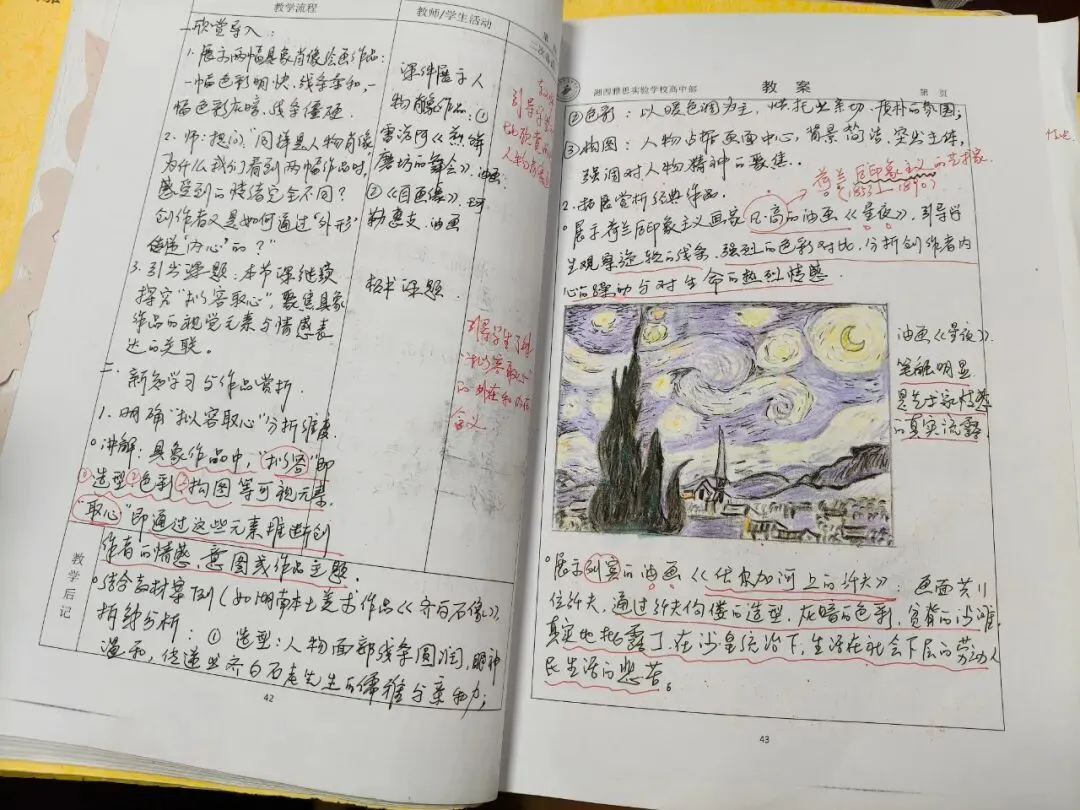 教学流程
教师/学生活动
一、欣赏导入:
1. 展示两幅具象肖像绘画作品:
一幅色彩明快、线条柔和,一
幅色彩灰暗、线条僵硬.
2. 师:提问"同样是人物肖像
为什么我们看到两幅作品时,
感受到的情绪完全不同?
创作者又是如何通过"外形"
传递"内心"的?"
3. 引出课题:本节课继续
探究"拟容取心",聚焦具象
作品的视觉元素与情感表
达的关联。
二、
新知学习与作品赏析.
1. 明确"拟容取心"分析维度.
讲解:具象作品中,"拟容"即
①造型②色彩③构图等可视元素.
"取心"即通过这些元素推断创
作者的情感、意图或作品主题.
结合教材案例(如湖南本土美术作品《齐白石像》),
拆线分析:① 造型:人物面部线条圆润,眼神
温和,传递出齐白石老先生的儒雅与亲和力;
教学后记
42
课件展示人
物肖像作品:①
雷诺阿《煎饼
磨坊的舞会》.油画
②《自画像》.珂
勒惠支.油画
板书课题.
引导学生
人物肖像
引导学生了解
"拟容取心"
的外在和内在
含义
湘西雅思实验学校高中部
教案
第 页
②色彩:以暖色调为主,烘托出亲切、质朴的氛围;
③构图:人物占据画面中心,背景简洁,突出主体,
强调对人物精神的聚焦.
荷兰后印象主义的艺术家
(1853—1890)
2. 拓展赏析经典作品.
展示荷兰后印象主义画家凡·高的油画《星夜》,引导学
生观察旋转的线条、强烈的色彩对比,分析创作者内
心的躁动与对生命的热烈情感.
油画《星夜》.
笔触明显
是艺术家情感
的真实流露.
展示列宾的油画《伏尔加河上的纤夫》:画面共11
位纤夫,通过纤夫佝偻的造型、灰暗的色彩、贫瘠的沙滩,
真实地揭露了在沙皇统治下,生活在社会下层的劳动人
民生活的悲苦。
43